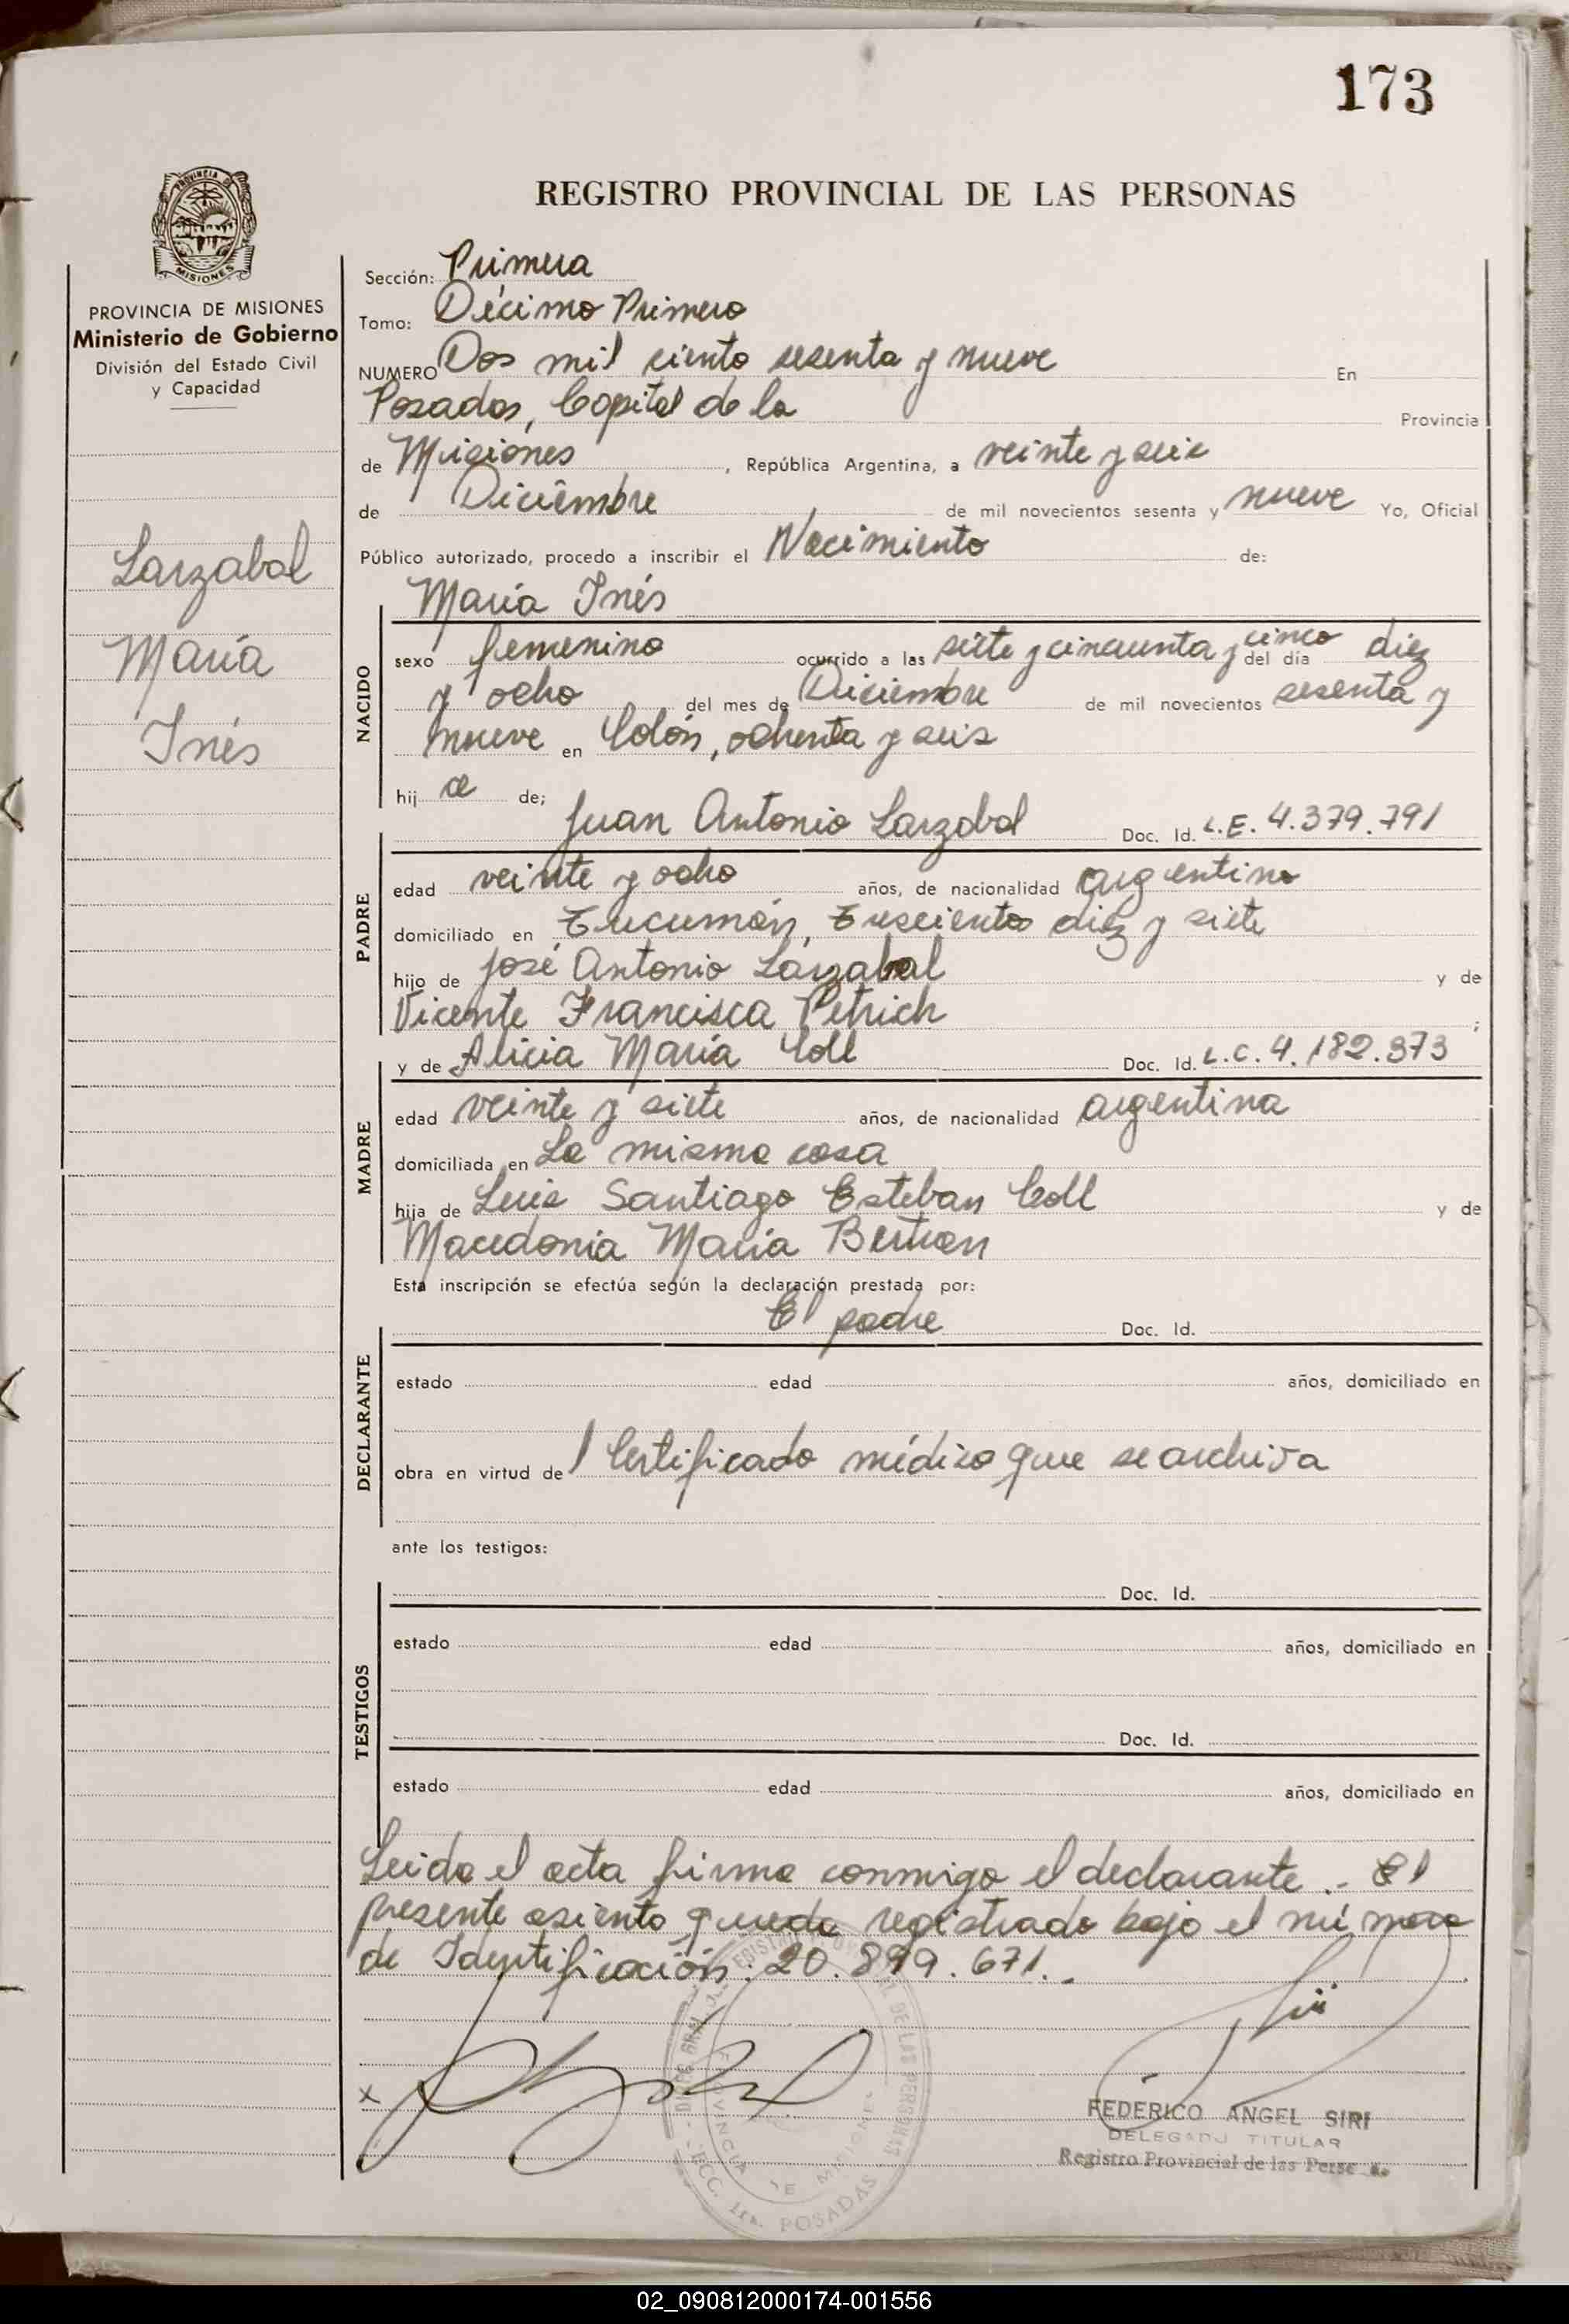 173
REGISTRO PROVINCIAL DE LAS PERSONAS
PROVINCIA DE MISIONES
Ministerio de Gobierno
División del Estado Civil
y Capacidad
Larzabal
María
Inés
Sección: Primera
Tomo: Décimo Primero
NUMERO Dos mil ciento sesenta y nueve En
Posadas, Capital de la Provincia
de Misiones, República Argentina, a veinte y seis
de Diciembre de mil novecientos sesenta y nueve Yo, Oficial
Público autorizado, procedo a inscribir el Nacimiento de:
María Inés
NACIDO
sexo femenino ocurrido a las siete y cincuenta y cinco del día diez
y ocho del mes de Diciembre de mil novecientos sesenta y
nueve en Colón, ochenta y seis
hij a de;
Juan Antonio Larzabal Doc. Id. L.E. 4.379.791
PADRE
edad veinte y ocho años, de nacionalidad argentino
domiciliado en Tucumán, Trescientos diez y siete
hijo de José Antonio Larzabal y de
Vicente Francisca Petrich ;
y de Alicia María Coll Doc. Id. L.C. 4.182.373
MADRE
edad veinte y siete años, de nacionalidad argentina
domiciliada en La misma casa
hija de Luis Santiago Esteban Coll y de
Macedonia María Bertran
Esta inscripción se efectúa según la declaración prestada por:
El padre Doc. Id.
DECLARANTE
estado edad años, domiciliado en
obra en virtud de l Certificado médico que se archiva
ante los testigos:
TESTIGOS
Doc. Id.
estado edad años, domiciliado en
Doc. Id.
estado edad años, domiciliado en
Leida el acta firma conmigo el declarante.- El
presente asiento queda registrado bajo el número
de Identificación: 20.899.671.-
x
FEDERICO ANGEL SIRI
DELEGADO TITULAR
Registro Provincial de las Perso
POSADAS
02_090812000174-001556